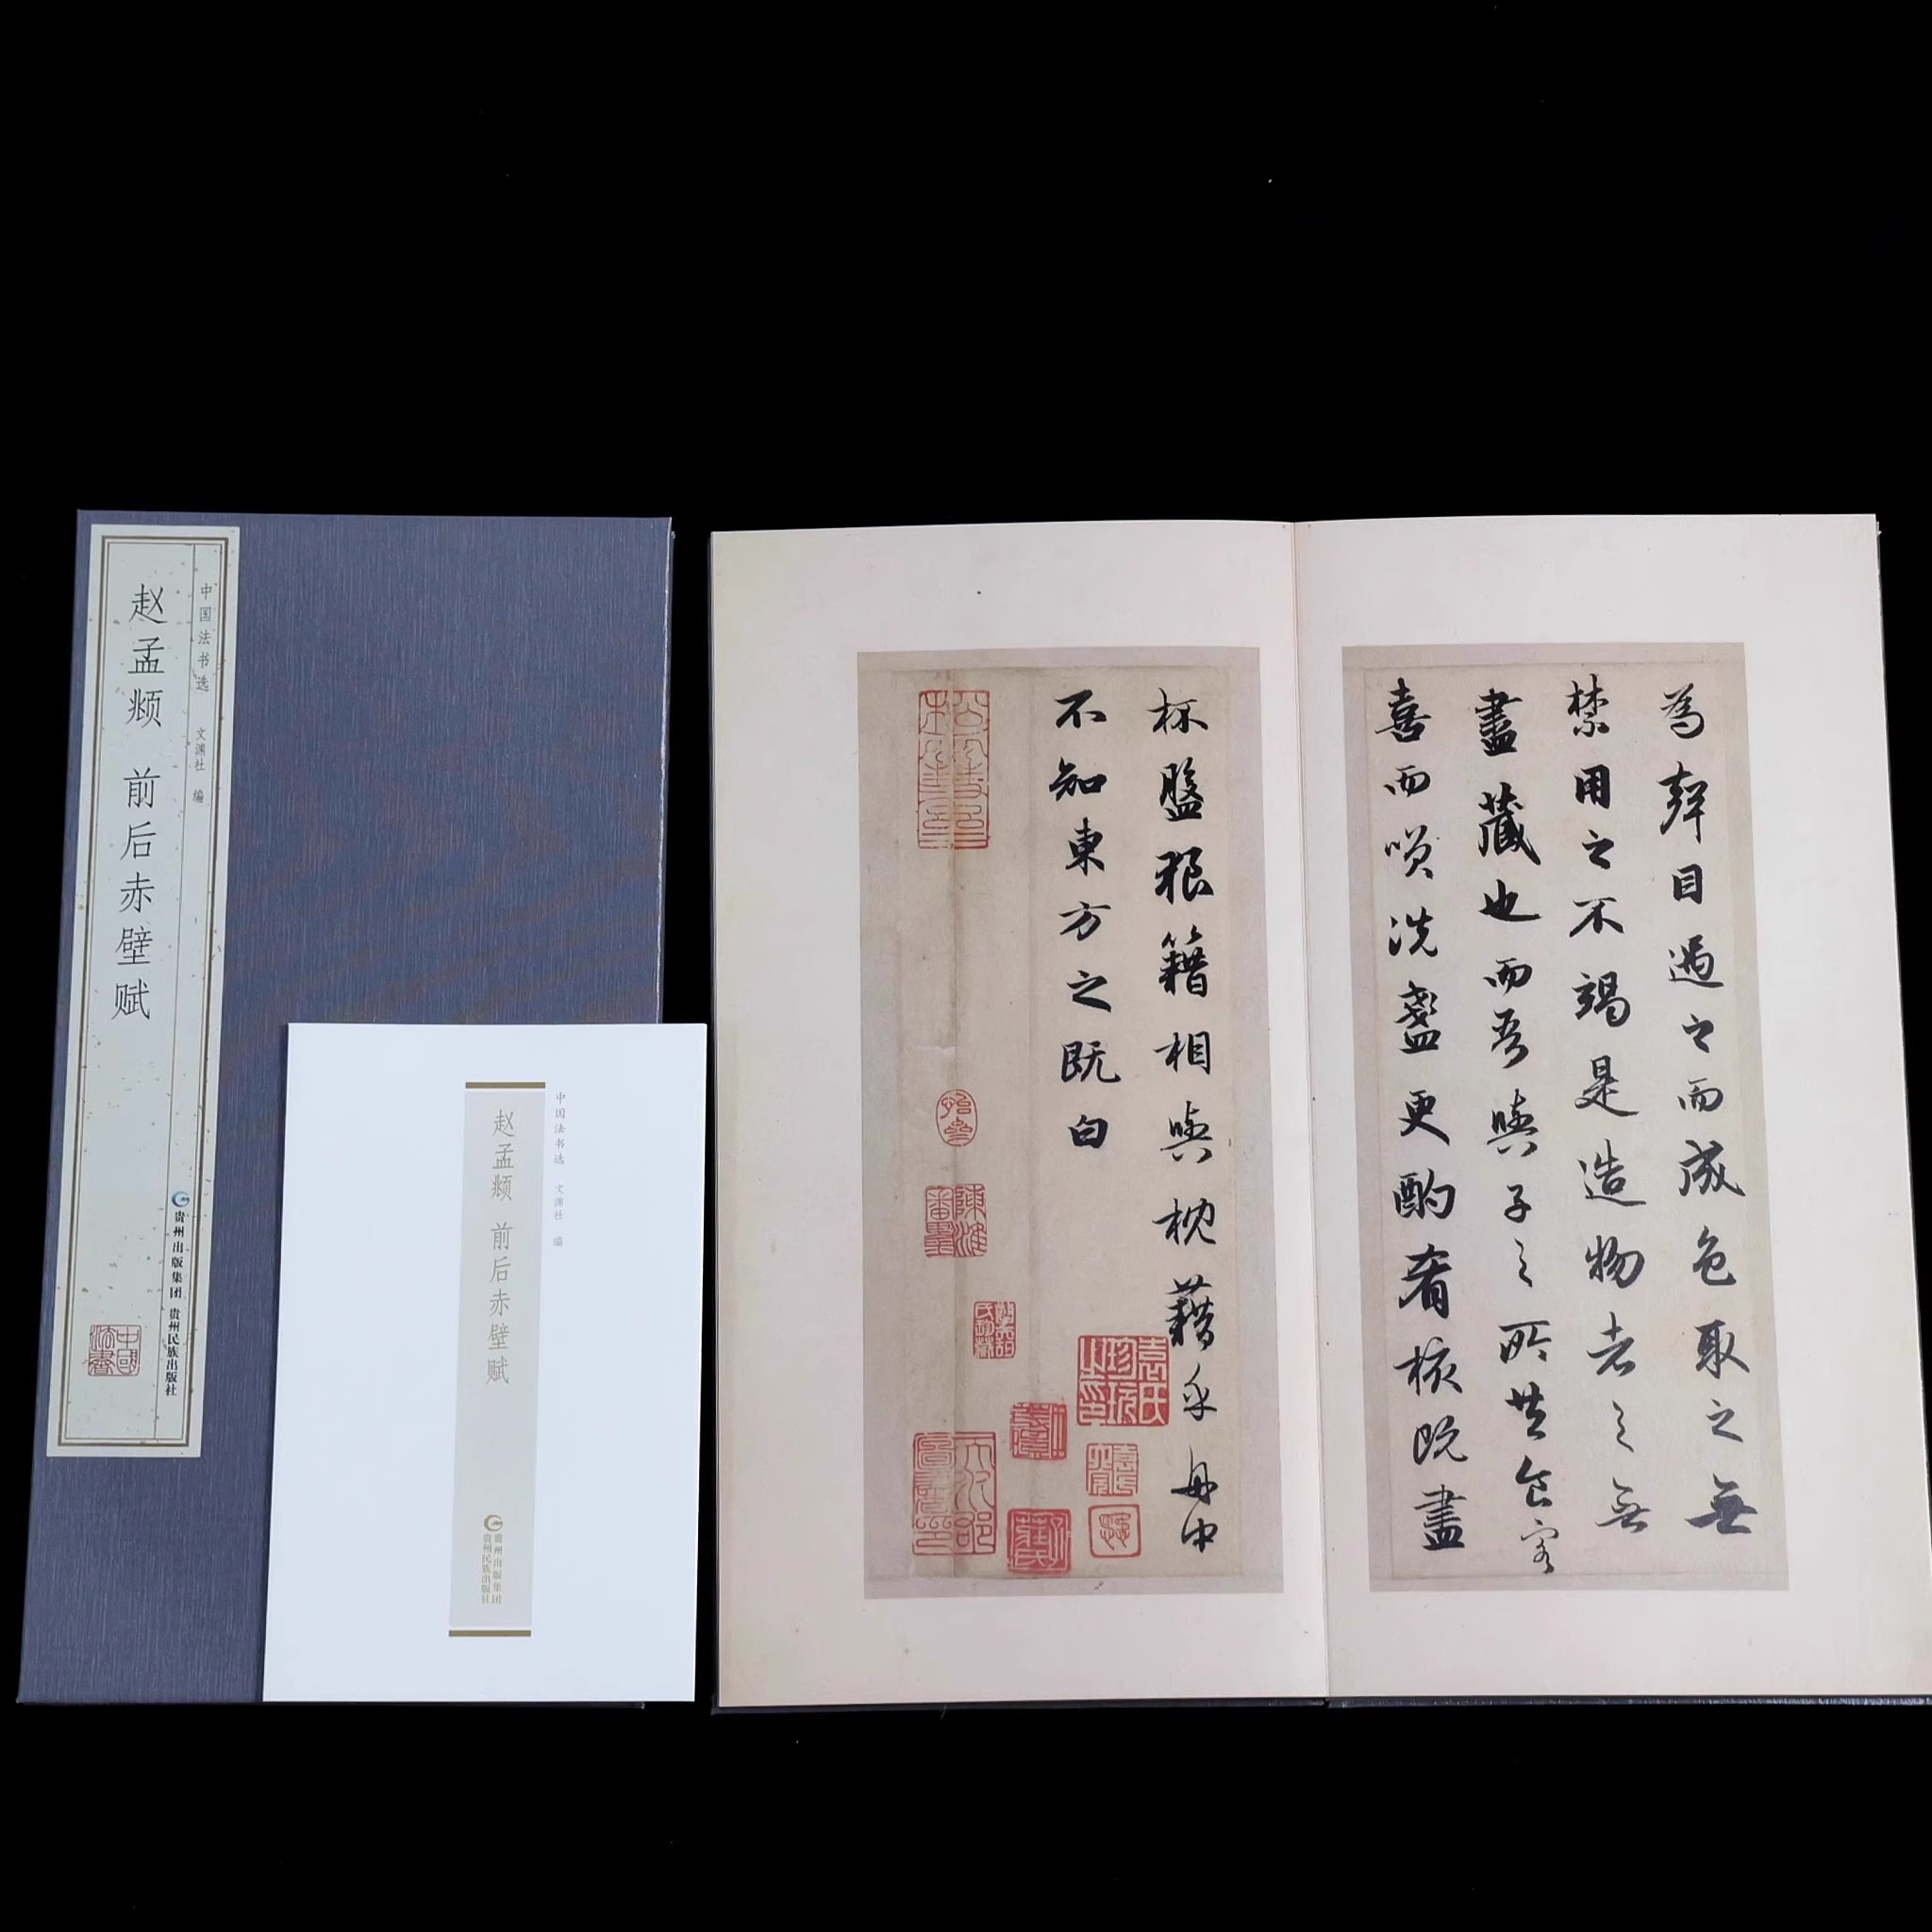 中国法书选 文渊社 编
赵孟頫 前后赤壁赋
贵州出版集团 贵州民族出版社
中國法書
中国法书选 文渊社 编
赵孟頫 前后赤壁赋
贵州出版集团
贵州民族出版社
為聲目遇之而成色取之無
禁用之不竭是造物者之無
盡藏也而吾與子之所共食客
喜而唉洗盞更酌肴核既盡
杯盤狼籍相與枕藉乎舟中
不知東方之既白
袁氏珍玩之印